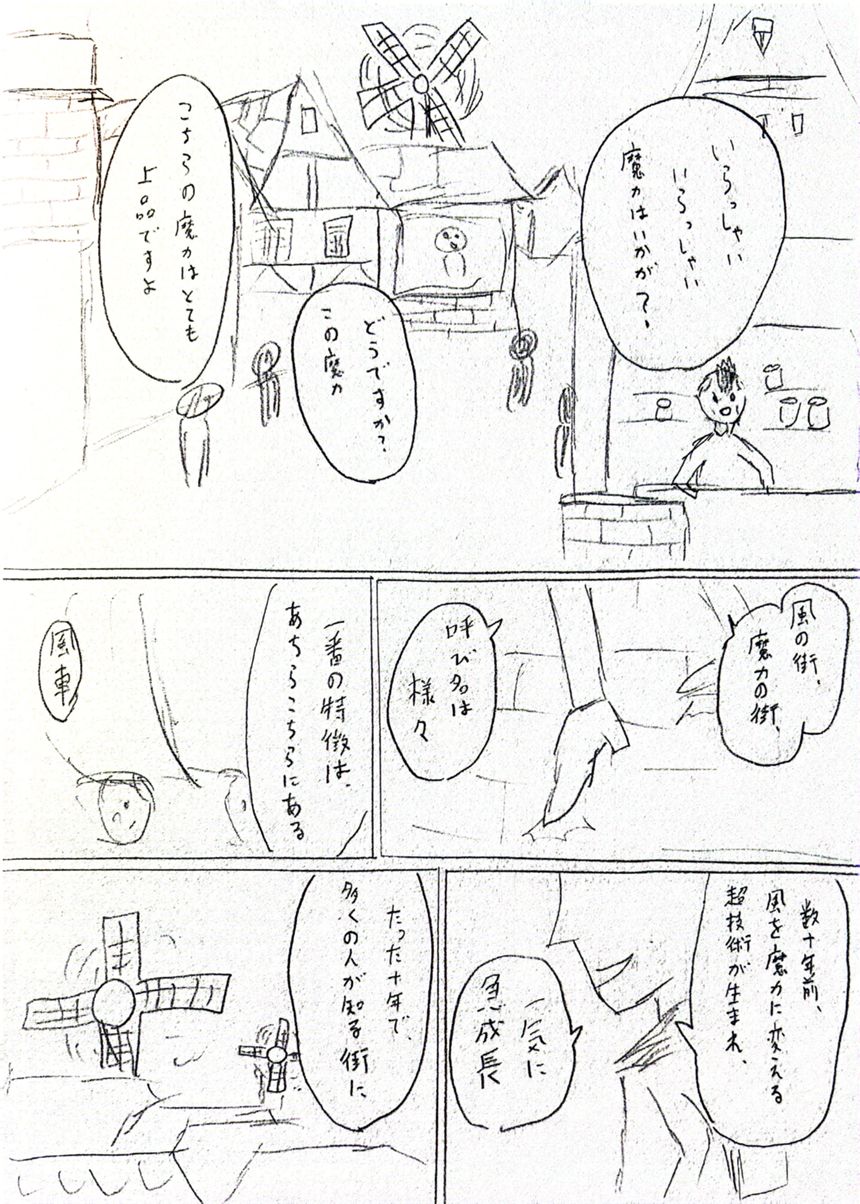 いらっしゃい
いらっしゃい
魔力はいかが?
どうですか?
この魔力
こちらの魔力はとても
上品ですよ
風の街、
魔力の街、
呼び名は
様々
一番の特徴は、
あちらこちらにある
風車
数十年前、
風を魔力に変える
超技術が生まれ、
一気に
急成長
たった十年で、
多くの人が知る街に